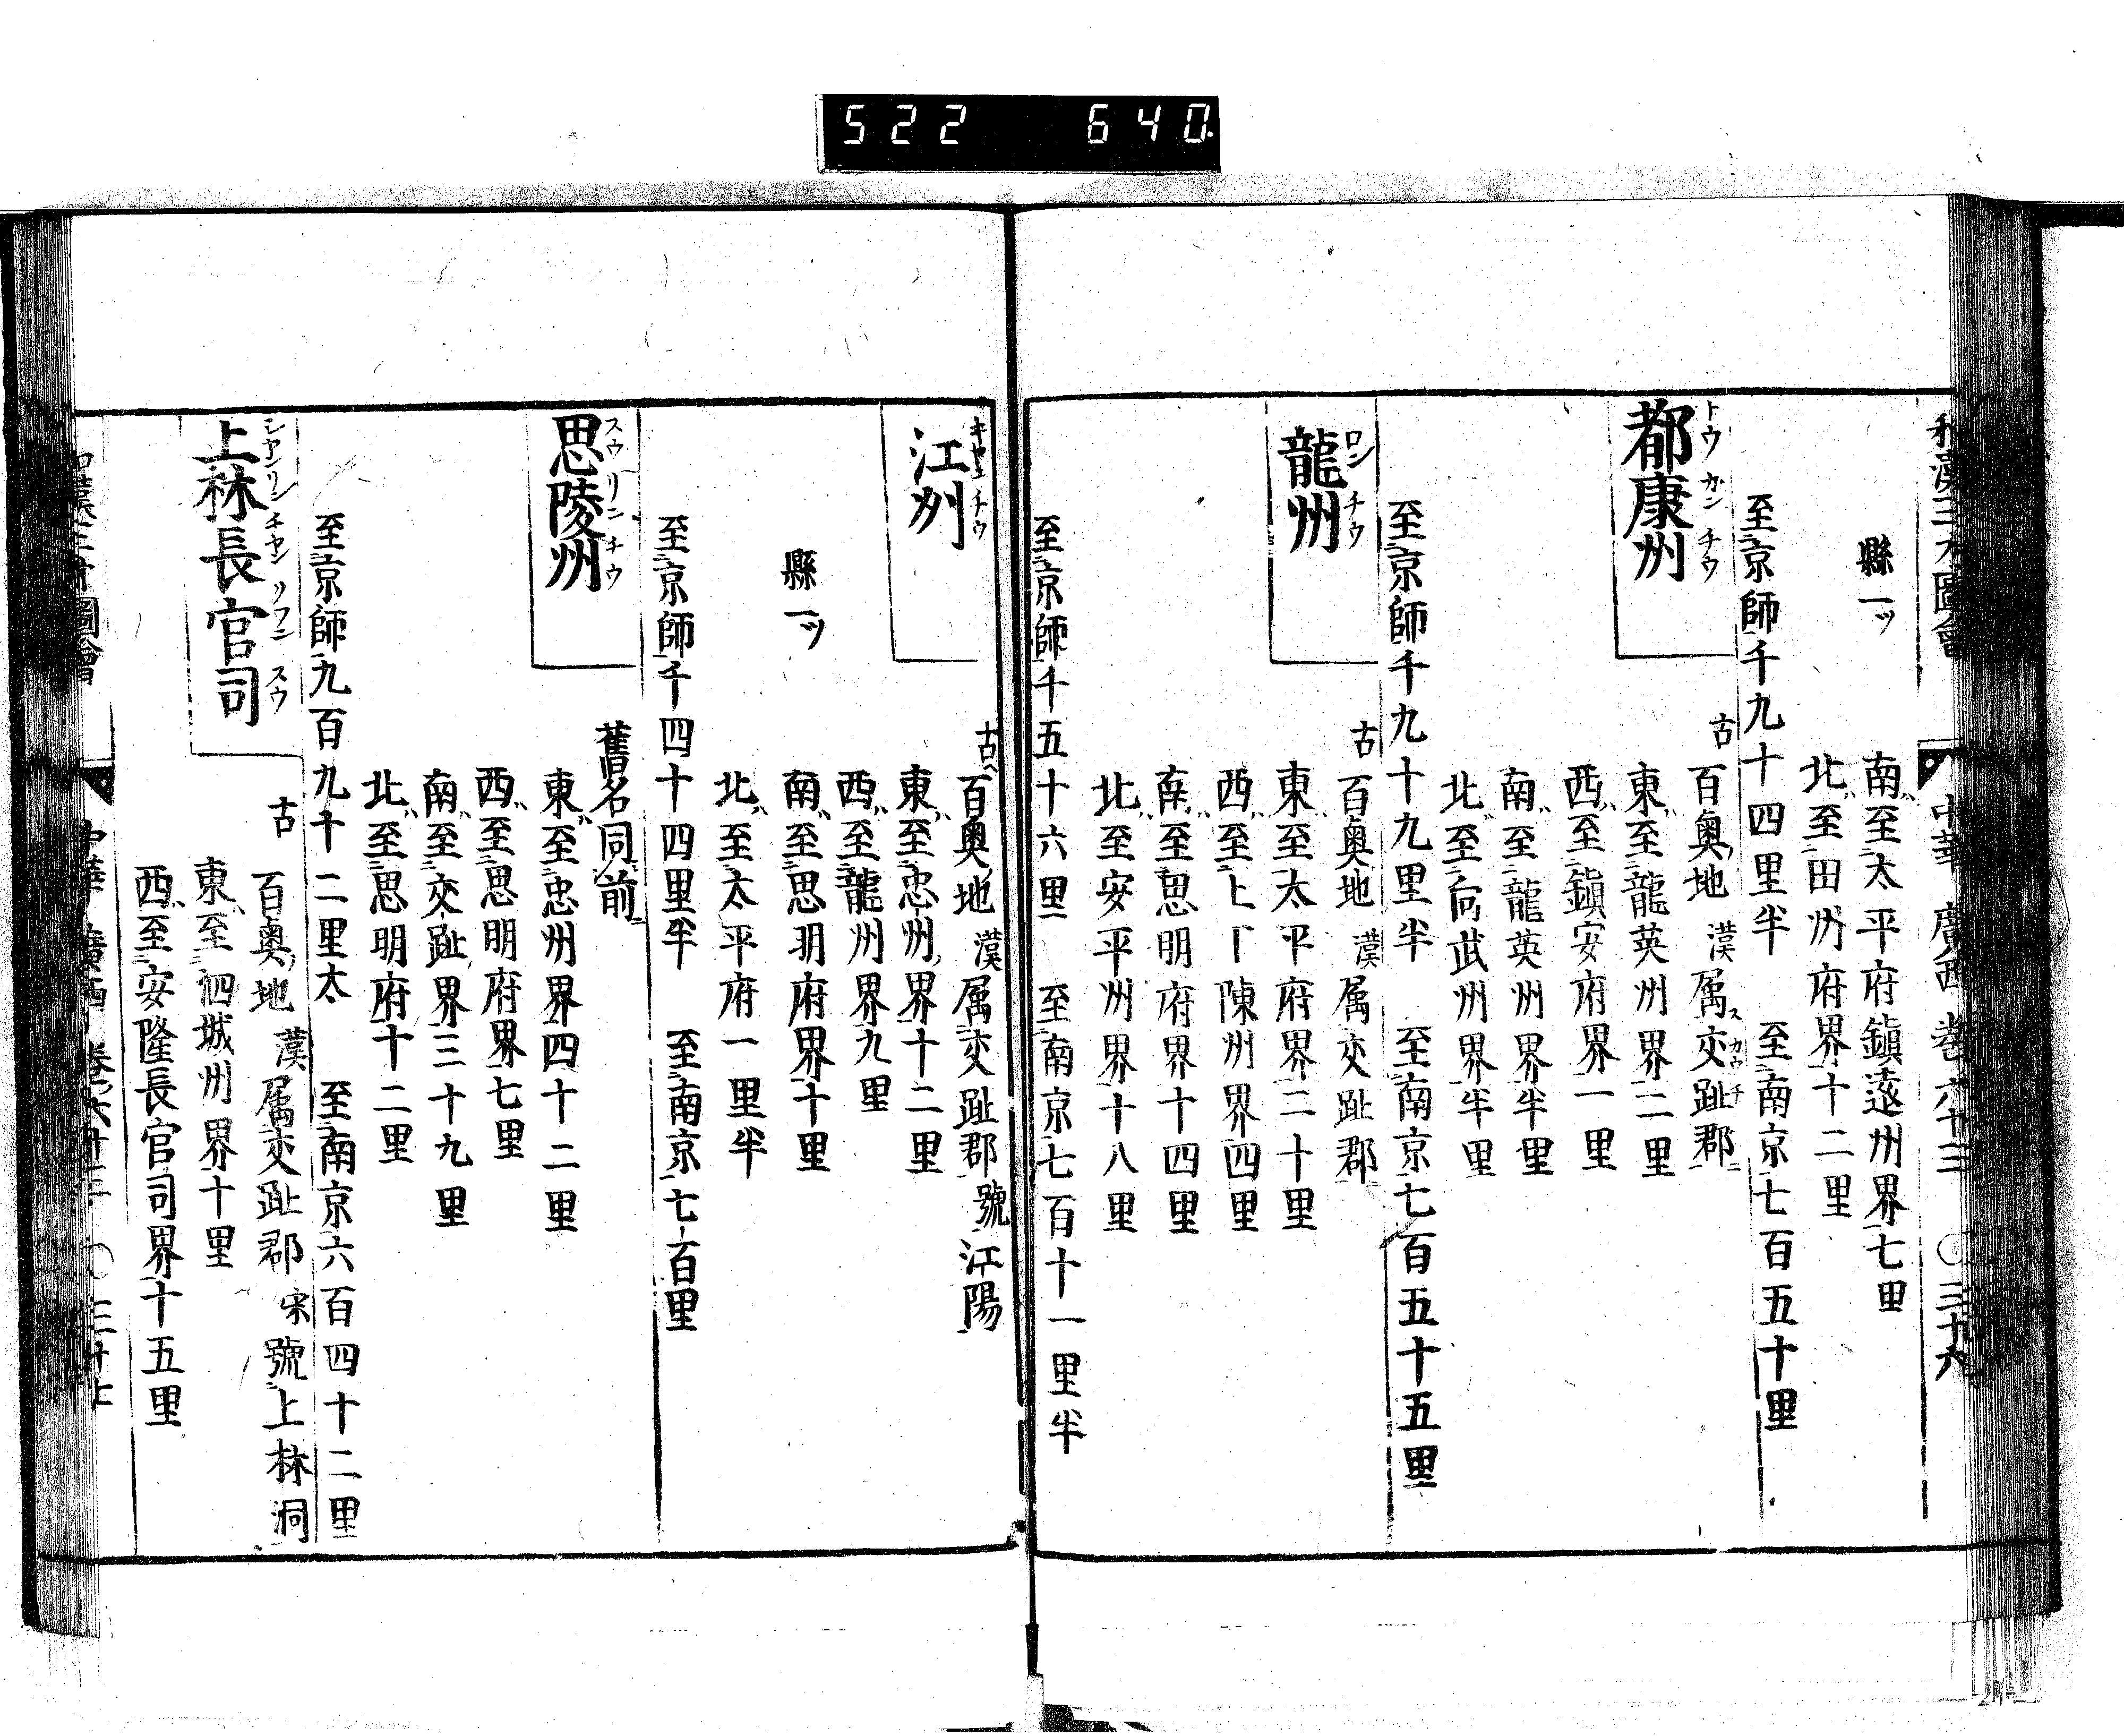 522 640
和漢三才圖會 中華 廣西 巻六十三 〇三十六
南至太平府鎮遠州界七里
縣一ツ 北至田州府界十二里
至京師千九十四里半 至南京七百五十里
都康州 トウカンチウ 古百奧地 漢属交趾郡
東至龍英州界二里
西至鎮安府界一里
南至龍英州界半里
北至向武州界半里
至京師千九十九里半 至南京七百五十五里
龍州 ロンチウ 古百奧地 漢属交趾郡
東至太平府界二十里
西至上下陳州界四里
南至思明府界十四里
北至安平州界十八里
至京師千五十六里 至南京七百十一里半
江州 古百奧地 漢属交趾郡號江陽
東至忠州界十二里
西至龍州界九里
縣一ツ 南至思明府界十里
北至太平府一里半
至京師千四十四里半 至南京七百里
思陵州 スウリンチウ 舊名同前
東至忠州界四十二里
西至思明府界七里
南至交趾界三十九里
北至思明府十二里
至京師九百九十二里太 至南京六百四十二里
上林長官司 古百奧地 漢属交趾郡 宋號上林洞
東至泗城州界十里
西至安隆長官司界十五里
圖會 中華 廣西 巻六十三 〇三十七